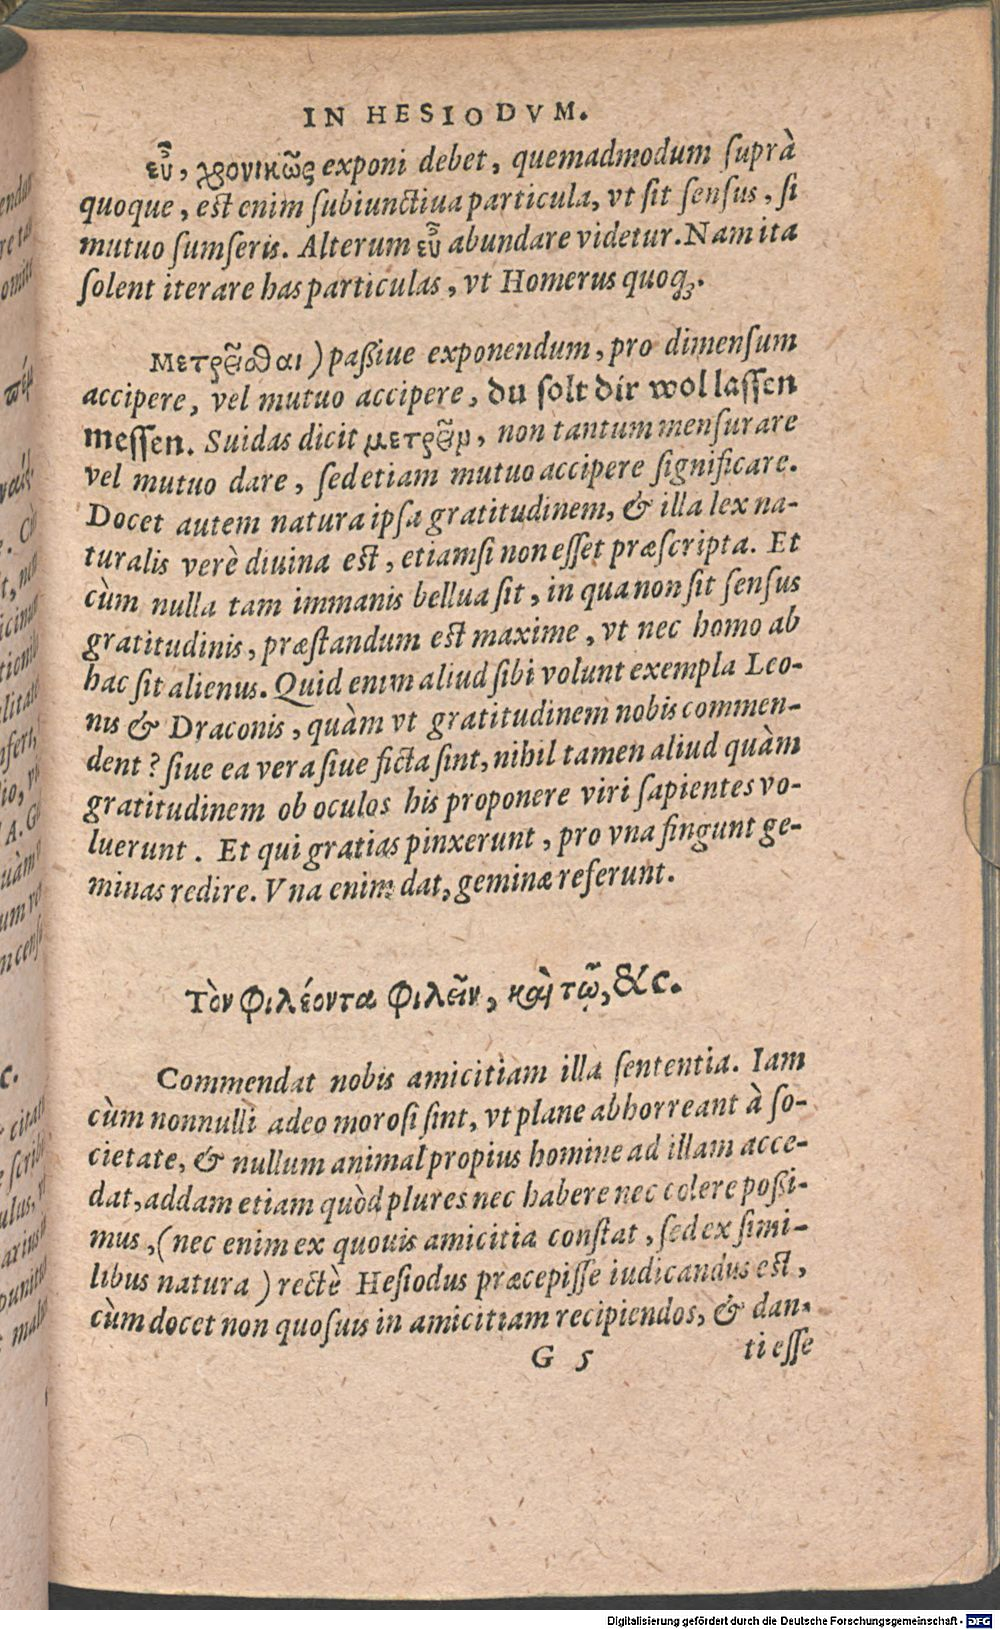 IN HESIODVM.
εὖ, χρονικῶς exponi debet, quemadmodum suprà
quoque, est enim subiunctiua particula, vt sit sensus, si
mutuo sumseris. Alterum εὖ abundare videtur. Nam ita
solent iterare has particulas, vt Homerus quoq;.
Μετρεῖσθαι) paßiue exponendum, pro dimensum
accipere, vel mutuo accipere, du solt dir wol lassen
messen. Suidas dicit μετρεῖν, non tantum mensurare
vel mutuo dare, sed etiam mutuo accipere significare.
Docet autem natura ipsa gratitudinem, & illa lex na-
turalis verè diuina est, etiamsi non esset præscripta. Et
cùm nulla tam immanis bellua sit, in qua non sit sensus
gratitudinis, præstandum est maxime, vt nec homo ab
hac sit alienus. Quid enim aliud sibi volunt exempla Leo-
nis & Draconis, quàm vt gratitudinem nobis commen-
dent? siue ea vera siue ficta sint, nihil tamen aliud quàm
gratitudinem ob oculos his proponere viri sapientes vo-
luerunt. Et qui gratias pinxerunt, pro vna fingunt ge-
minas redire. Vna enim dat, geminæ referunt.
Τὸν φιλέοντα φιλεῖν, καὶ τῷ, &c.
Commendat nobis amicitiam illa sententia. Iam
cùm nonnulli adeo morosi sint, vt plane abhorreant à so-
cietate, & nullum animal propius homine ad illam acce-
dat, addam etiam quòd plures nec habere nec colere poßi-
mus, (nec enim ex quouis amicitia constat, sed ex simi-
libus natura) rectè Hesiodus præcepisse iudicandus est,
cùm docet non quosuis in amicitiam recipiendos, & dan-
G 5 ti esse
Digitalisierung gefördert durch die Deutsche Forschungsgemeinschaft - DFG